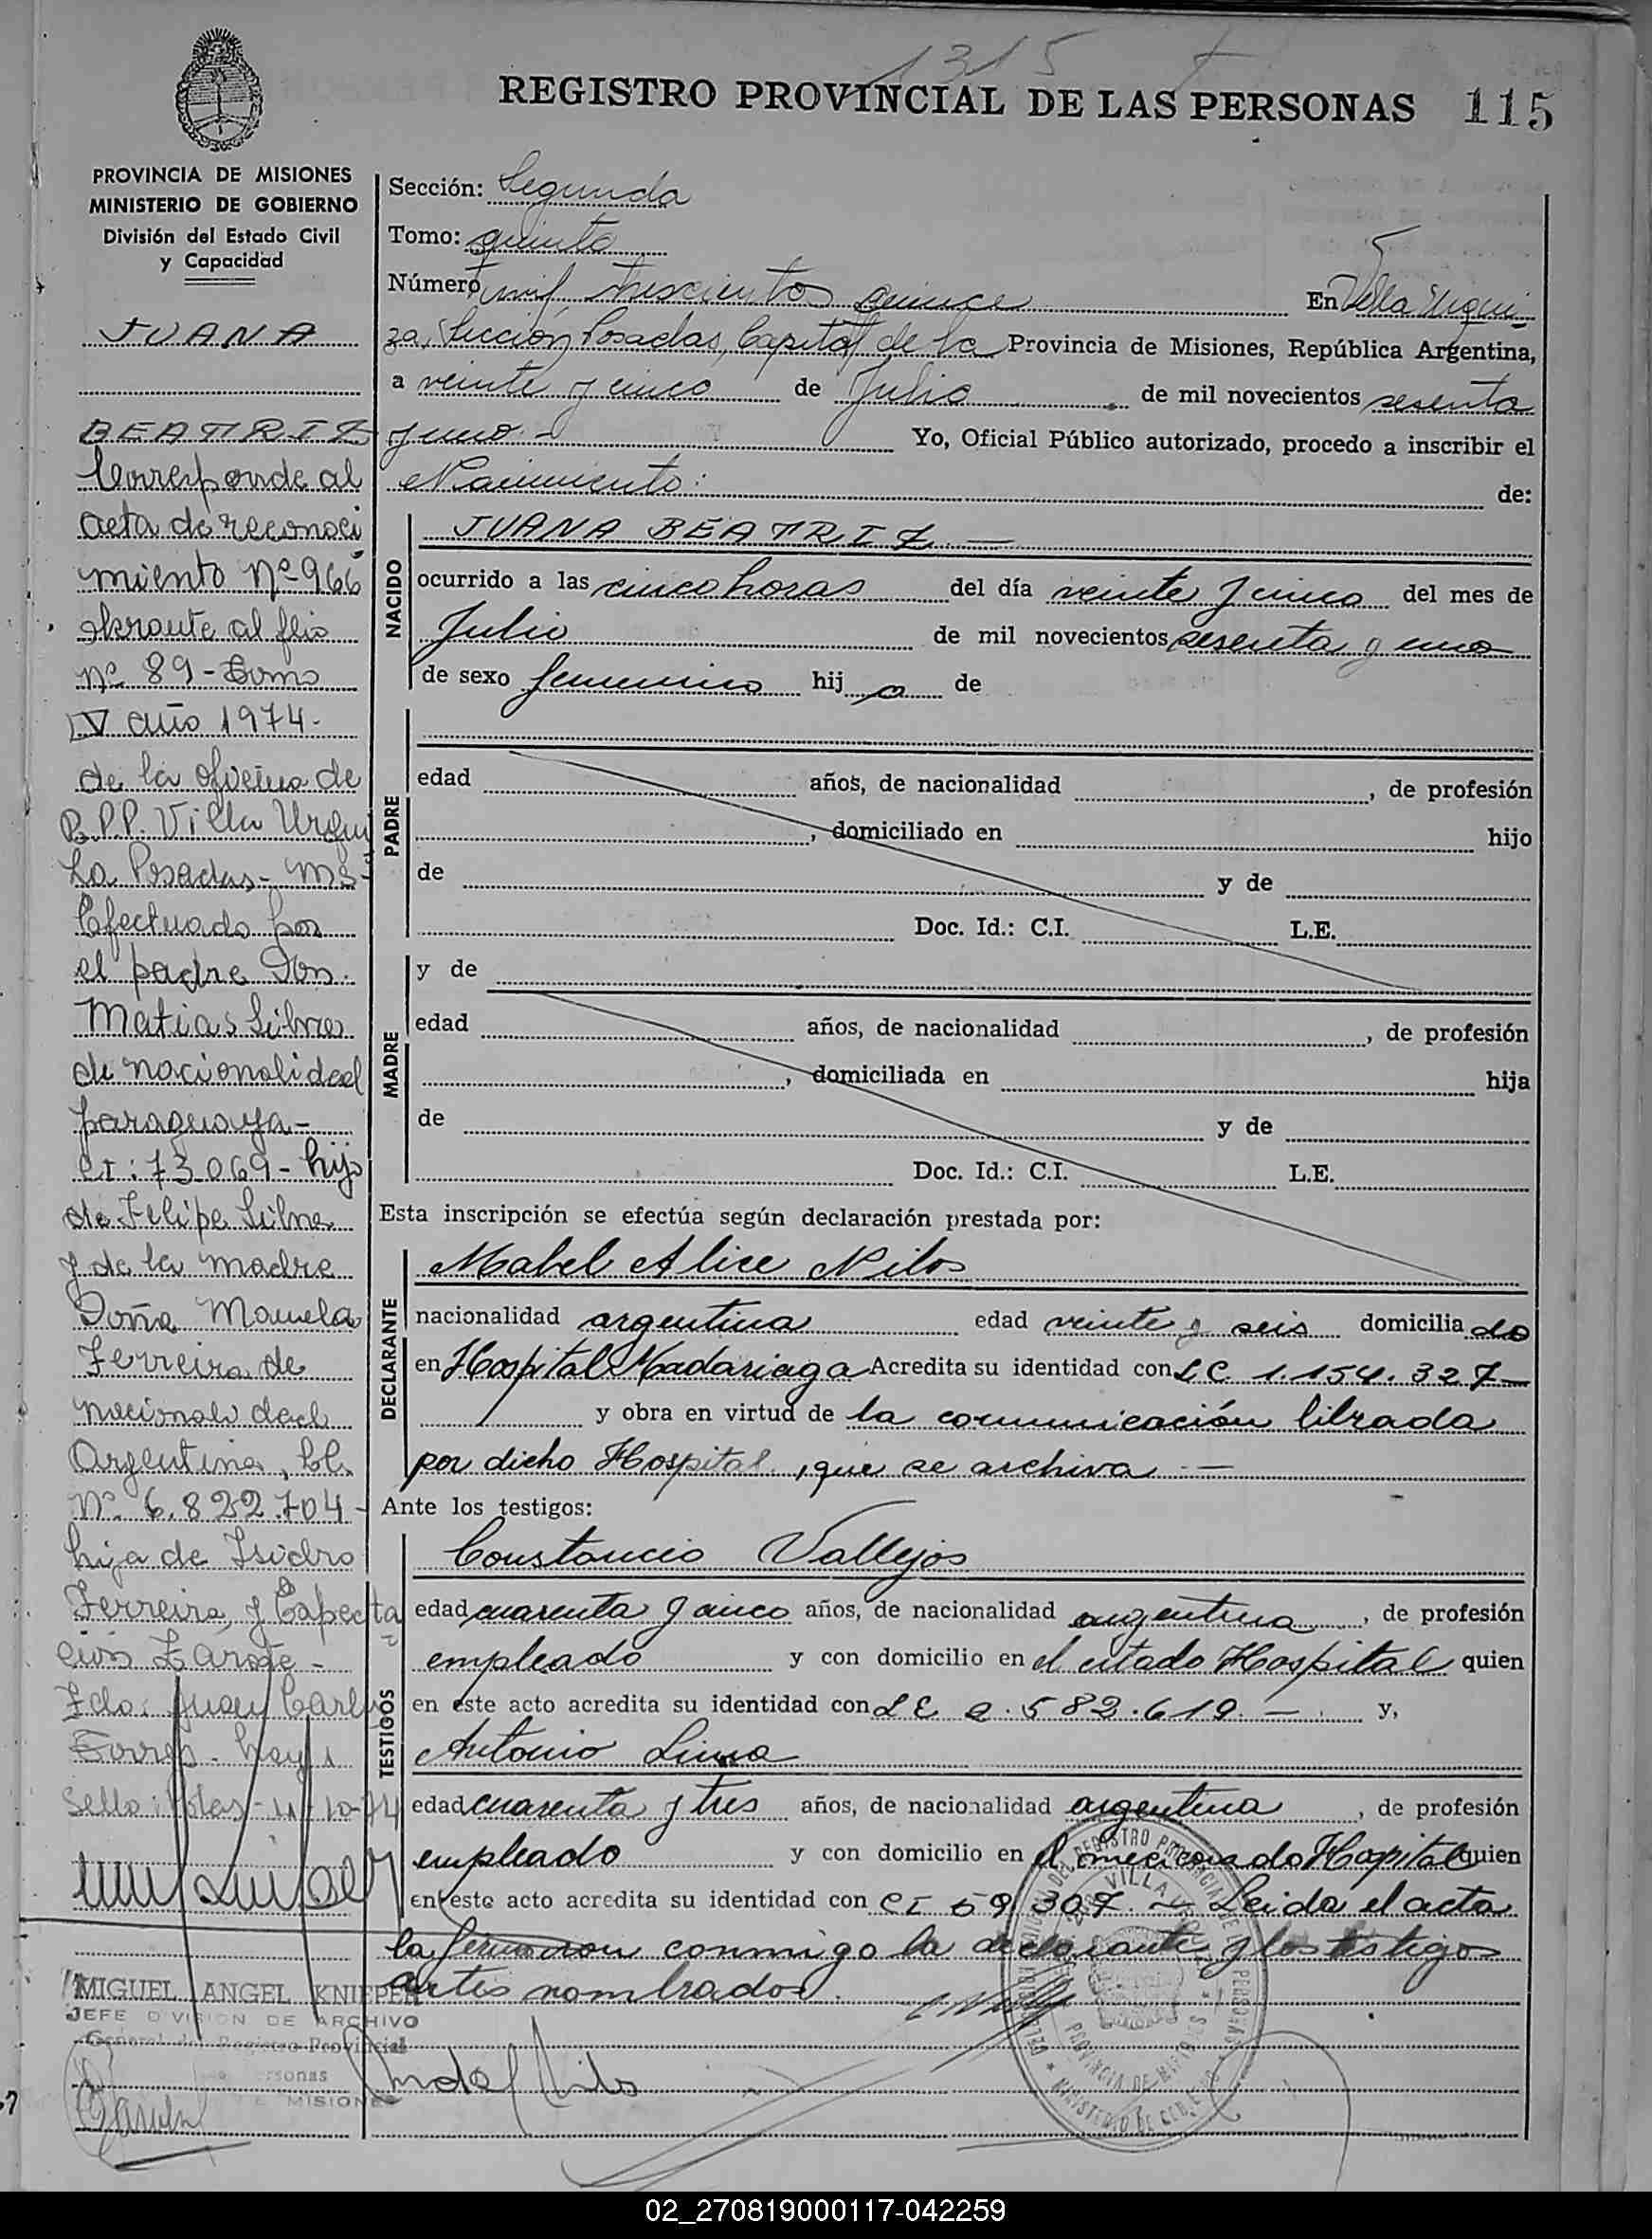 1315
REGISTRO PROVINCIAL DE LAS PERSONAS 115
PROVINCIA DE MISIONES
MINISTERIO DE GOBIERNO
División del Estado Civil
y Capacidad
JUANA
BEATRIZ
Corresponde al
acta de reconoci
miento Nº 966
obrante al flio
nº 89 - Tomo
IV año 1974.
de la oficina de
R.P.P. Villa Urqui
za Posadas - Ms-
Efectuado por
el padre Don
Matias Silva
de nacionalidad
paraguaya -
CI: 73.069 - hijo
de Felipe Silva
y de la madre
Doña Manuela
Ferreira de
nacionalidad
Argentina, LC.
Nº 6.822.704 -
hija de Isidro
Ferreira y Capecita
ción Zarate -
Fdo: Juan Carlos
Sello: Pdas - 11-10-74
MIGUEL ANGEL KNIEPER
JEFE DIVISION DE ARCHIVO
General del Registro Provincial
MISIONES
Sección: Segunda
Tomo: quinto
Número mil trescientos quince En Villa Urqui
za, Sección Posadas, Capital de la Provincia de Misiones, República Argentina,
a veinte y cinco de Julio de mil novecientos sesenta
y uno - Yo, Oficial Público autorizado, procedo a inscribir el
Nacimiento: de:
NACIDO
JUANA BEATRIZ. —
ocurrido a las cinco horas del día veinte y cinco del mes de
Julio de mil novecientos sesenta y uno
de sexo femenino hij a de
PADRE
edad años, de nacionalidad , de profesión
, domiciliado en hijo
de y de
Doc. Id.: C.I. L.E.
MADRE
y de
edad años, de nacionalidad , de profesión
, domiciliada en hija
de y de
Doc. Id.: C.I. L.E.
Esta inscripción se efectúa según declaración prestada por:
DECLARANTE
Mabel Alice Nilos
nacionalidad argentina edad veinte y seis domicilia do
en Hospital Madariaga Acredita su identidad con LC 1.154.327 —
y obra en virtud de la comunicación librada
por dicho Hospital, que se archiva. —
Ante los testigos:
TESTIGOS
Constancio Vallejos
edad cuarenta y cinco años, de nacionalidad argentina , de profesión
empleado y con domicilio en el citado Hospital quien
en este acto acredita su identidad con LE 2.582.619. — y,
Antonio Lima
edad cuarenta y tres años, de nacionalidad argentina , de profesión
empleado y con domicilio en el mencionado Hospital quien
en este acto acredita su identidad con CI 59.307. — Leida el acta
la firmaron conmigo la declarante y los testigos
antes nombrados.
02_270819000117-042259